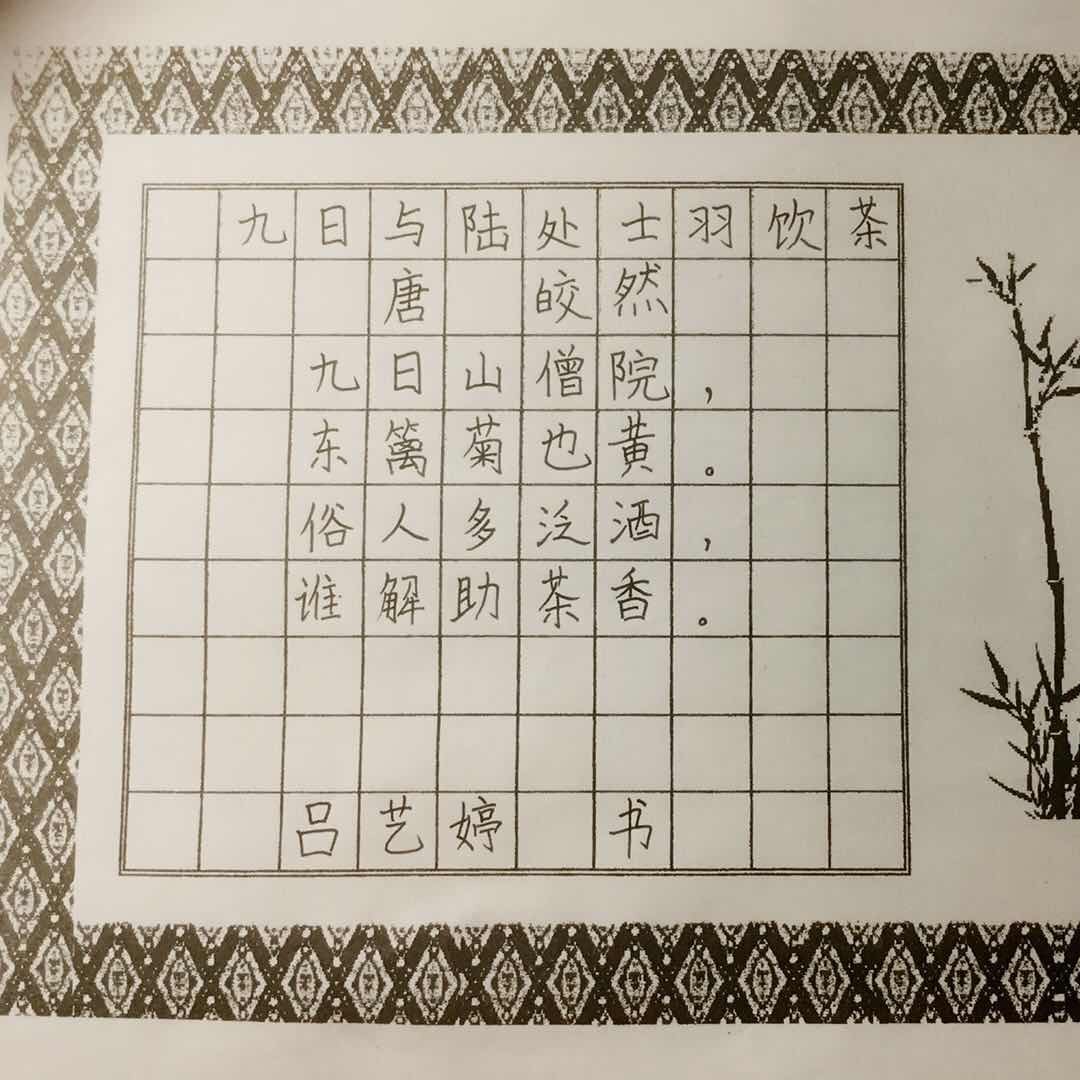 九日与陆处士羽饮茶
唐 皎然
九日山僧院，
东篱菊也黄。
俗人多泛酒，
谁解助茶香。
吕艺婷 书